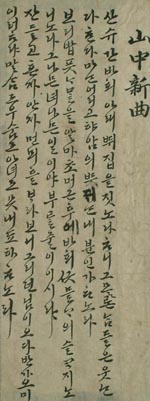 山中新曲
산슈간 바회 아래 뛰집을 짓노라 ᄒᆞ니 그 모론 ᄂᆞᆷ들은 욷ᄂᆞᆫ
다 ᄒᆞᆫ다마ᄂᆞᆫ 어리고 햐암의 뜻의ᄂᆞᆫ 내 분인가 ᄒᆞ노라
보리밥 풋ᄂᆞ물을 알마초 머근 후에 바횟긋 믉ᄀᆞ의 슬ᄏᆞ지 노
니노라 그나믄 녀나믄 일이야 부ᄅᆞᆯ 줄이 이시랴
잔들고 혼자 안자 먼 뫼흘 ᄇᆞ라보니 그리던 님이 오다 반가오미
이러ᄒᆞ랴 말ᄉᆞᆷ도 우움도 아녀도 몯내 됴하 ᄒᆞ노라